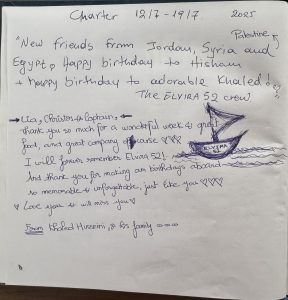 Charter 12/7 - 19/7 2025
Palestine
"New friends from Jordan, Syria and
Egypt. Happy birthday to Hisham
+ happy birthday to adorable Khaled!
The ELVIRA 52 crew
Lia, Christos & Captain,
Thank you so much for a wonderful week & great
food, and great company of course ♡♡♡
I will forever remember Elvira 52!
And thank you for making our birthdays aboard
so memorable & unforgettable, just like you ♡♡♡
♡ Love you & will miss you ♡
From Khaled Hussein, & his family
ELVIRA
52